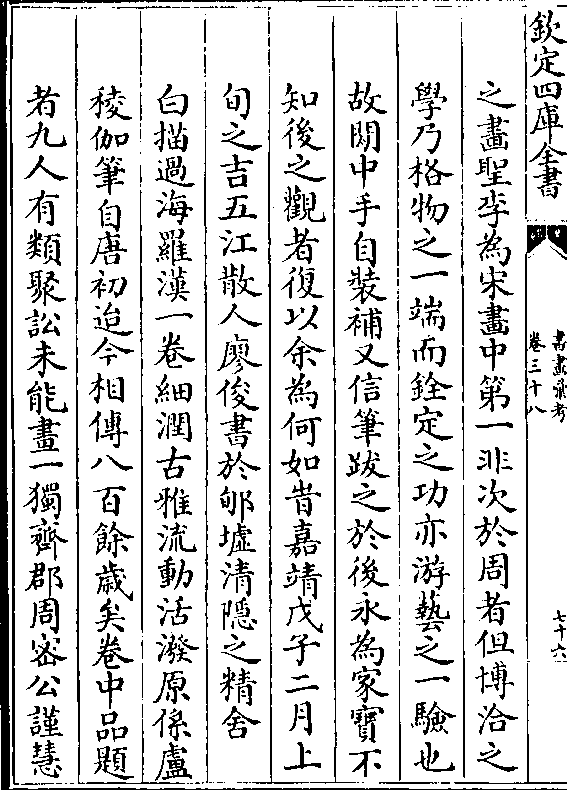 欽定四庫全書
書畫彙考
卷三十八
七十六
之畫聖李為宋畫中第一非次於周者但博洽之
學乃格物之一端而銓定之功亦游藝之一驗也
故閒中手自裝補又信筆跋之於後永為家寶不
知後之觀者復以余為何如昔嘉靖戊子二月上
旬之吉五江散人廖俊書於郇墟清隱之精舍
白描過海羅漢一卷細潤古雅流動活潑原係盧
稜伽筆自唐初迨今相傳八百餘歲矣卷中品題
者九人有類聚訟未能畫一獨齊郡周密公謹慧